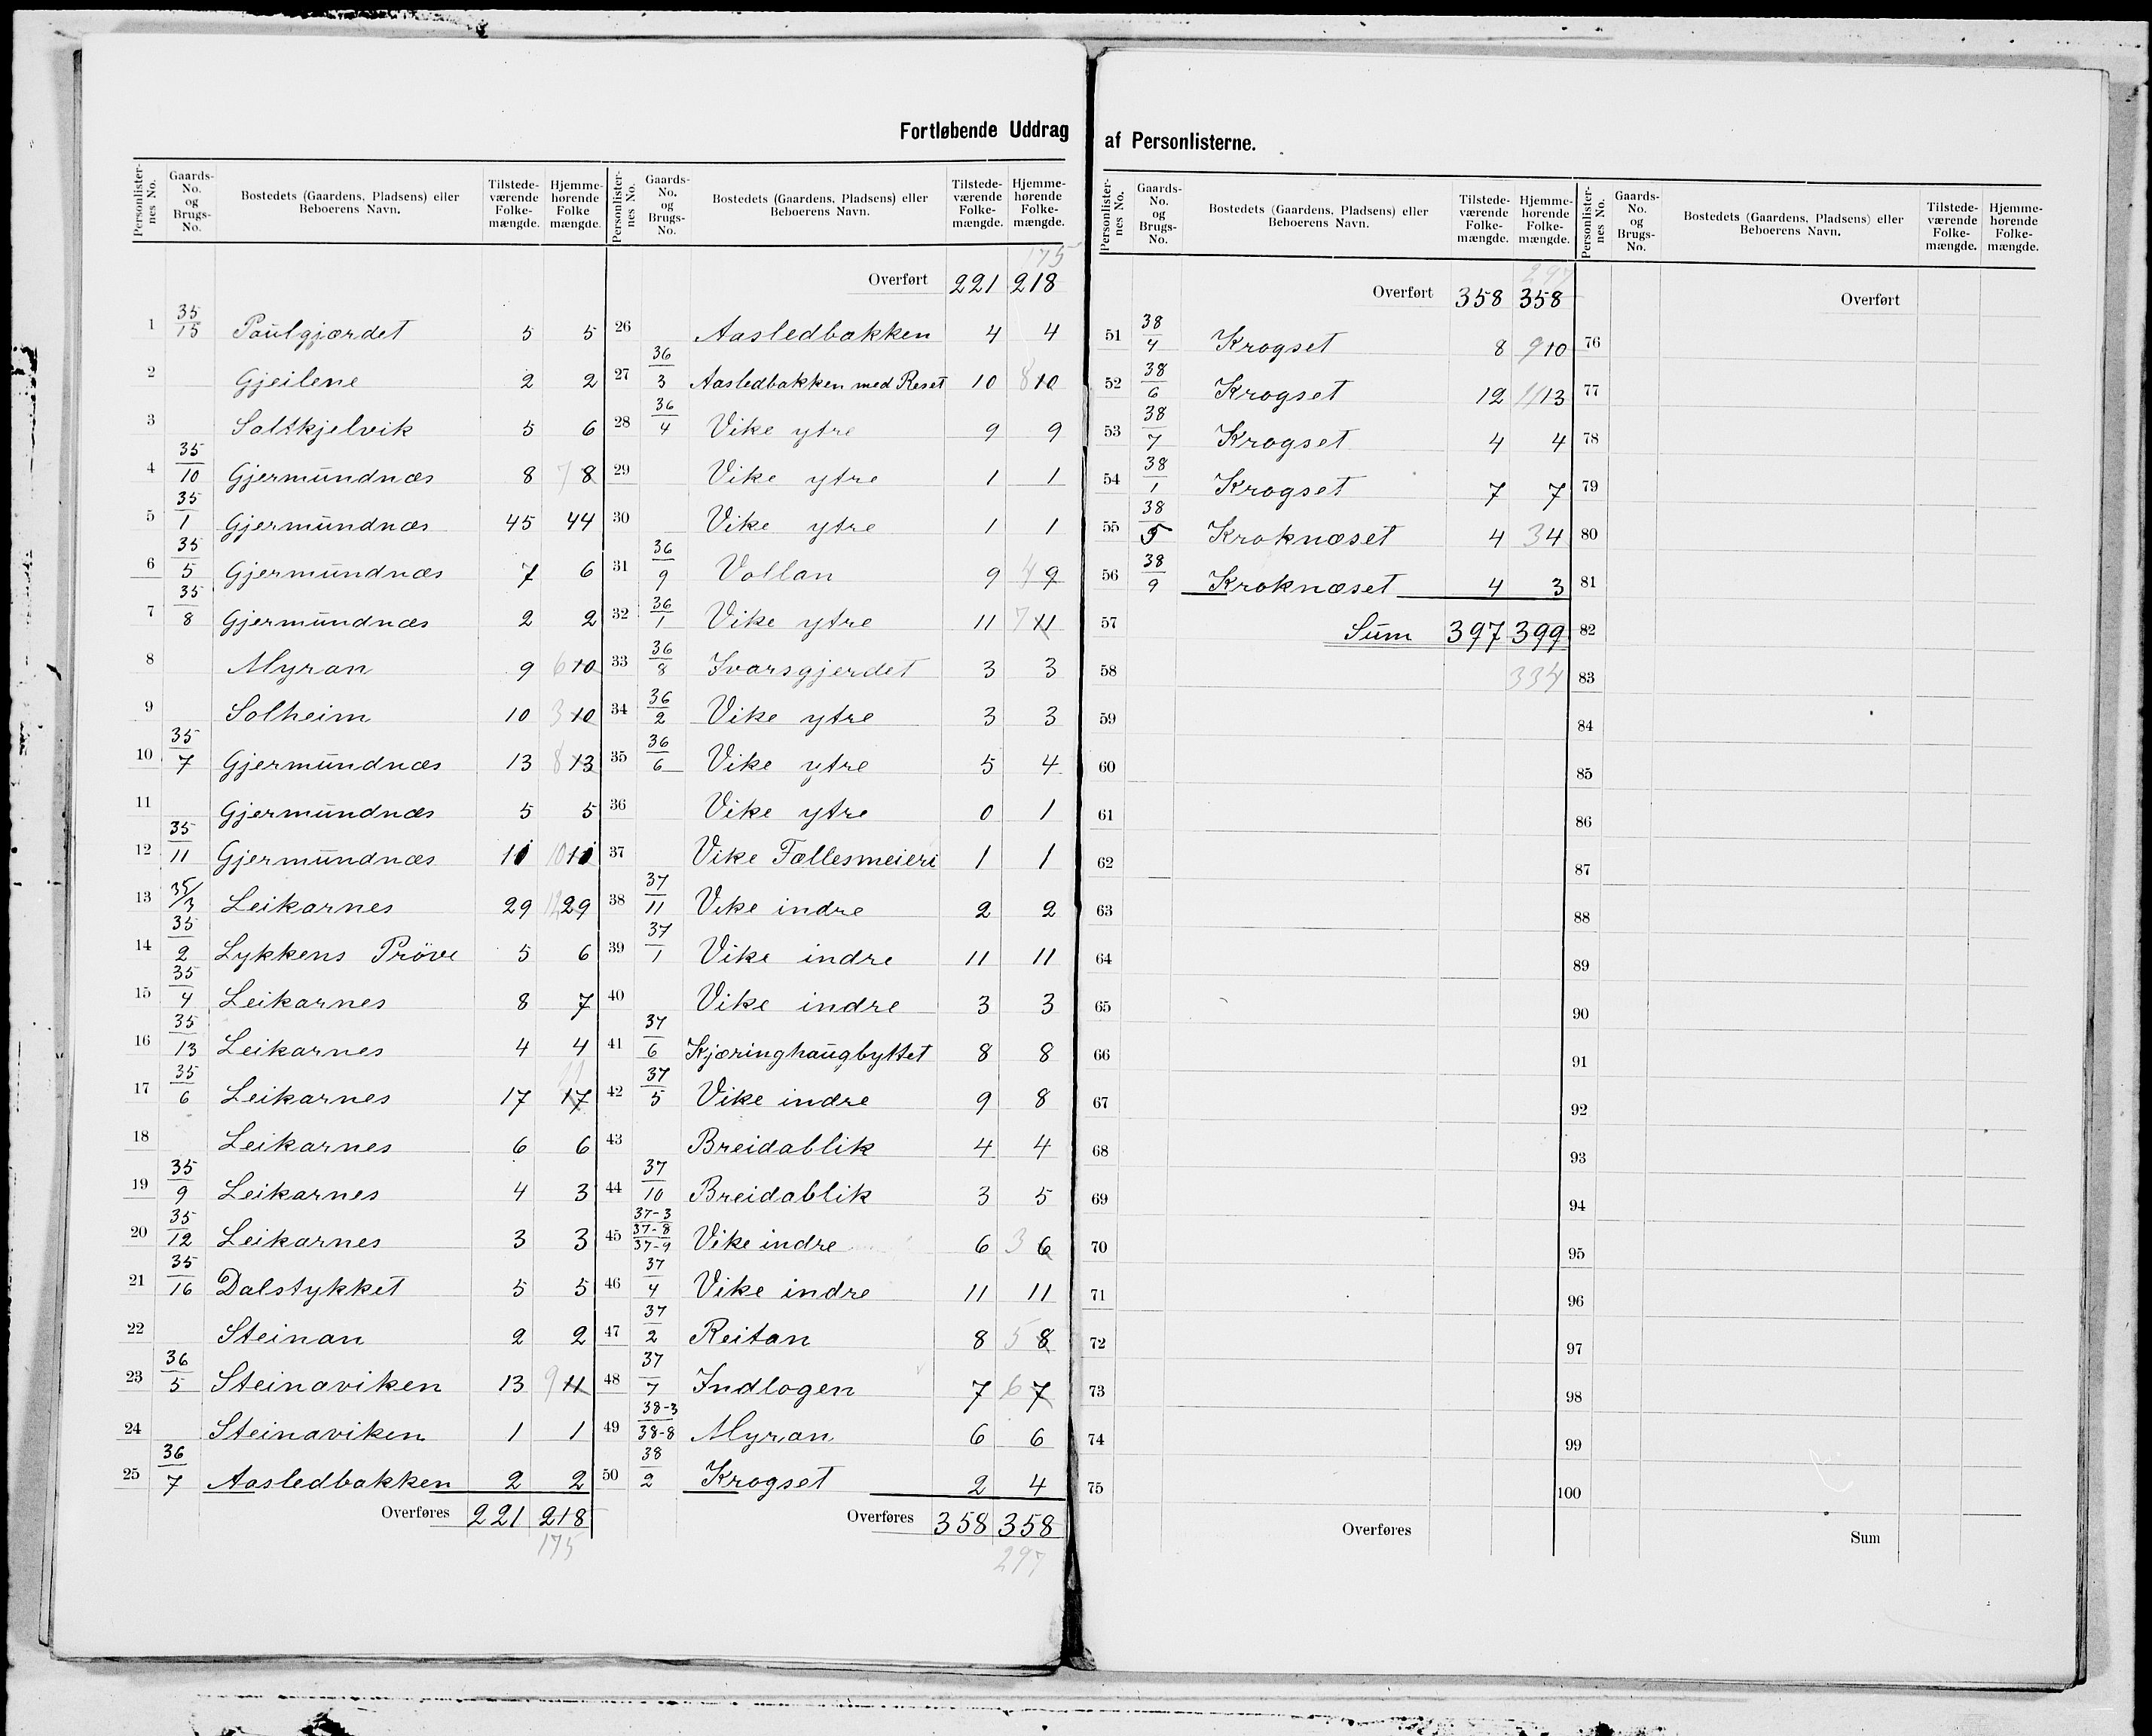 Fortløbende Uddrag af Personlisterne.
Personlister-nes No. Gaards-No. og Brugs-No. Bostedets (Gaardens, Pladsens) eller Beboerens Navn. Tilstede-værende Folke-mængde. Hjemme-hørende Folke mængde.
1 35/15 Paulgjærdet 5 5
2 Gjeilene 2 2
3 Saltkjelvik 5 6
4 35/10 Gjermundnæs 8 7 8
5 35/1 Gjermundnæs 45 44
6 35/5 Gjermundnæs 7 6
7 35/8 Gjermundnæs 2 2
8 Myran 9 6 10
9 Solheim 10 3 10
10 35/7 Gjermundnæs 13 8 13
11 Gjermundnæs 5 5
12 35/11 Gjermundnæs
13 35/3 Leikarnes 29 12 29
14 35/2 Lykkens Pröve 5 6
15 35/4 Leikarnes 8 7
16 35/13 Leikarnes 4 4
17 35/6 Leikarnes 17 17
18 Leikarnes 6 6
19 35/9 Leikarnes 4 3
20 35/12 Leikarnes 3 3
21 35/16 Dalstykket 5 5
22 Steinan 2 2
23 36/5 Steinaviken 13 9 11
24 Steinaviken 1 1
25 36/7 Aasledbakken 2 2
Overføres 221 218
175
Personlister-nes No. Gaards-No. og Brugs-No. Bostedets (Gaardens, Pladsens) eller Beboerens Navn. Tilstede-værende Folke-mængde. Hjemme-hørende Folke-mængde.
175
Overført 221 218
26 Aasledbakken 4 4
27 36/3 Aasledbakken med Reset 10 8 10
28 36/4 Vike ytre 9 9
29 Vike ytre 1 1
30 Vike ytre 1 1
31 36/9 Vollan 9 4 9
32 36/1 Vike ytre 11 7 11
33 36/8 Ivarsgjerdet 3 3
34 36/2 Vike ytre 3 3
35 36/6 Vike ytre 5 4
36 Vike ytre 0 1
37 Vike Fællesmeieri 1 1
38 37/11 Vike indre 2 2
39 37/1 Vike indre 11 11
40 Vike indre 3 3
41 37/6 Kjæringhaugbyttet 8 8
42 37/5 Vike indre 9 8
43 Breidablik 4 4
44 37/10 Breidablik 3 5
45 37-3 37-8 37-9 Vike indre 6 3 6
46 37/4 Vike indre 11 11
47 37/2 Reitan 8 5 8
48 37/7 Indlogen 7 6 7
49 38-3 38-8 Myran 6 6
50 38/2 Krogset 2 4
Overføres 358 358
297
Personlister-nes No. Gaards-No. og Brugs-No. Bostedets (Gaardens, Pladsens) eller Beboerens Navn. Tilstede-værende Folke-mængde. Hjemme-hørende Folke-mængde.
297
Overført 358 358
51 38/4 Krogset 8 9 10
52 38/6 Krogset 12 11 13
53 38/7 Krogset 4 4
54 38/1 Krogset 7 7
55 38/5 Kroknæset 4 3 4
56 38/9 Kroknæset 4 3
57 Sum 397 399
58 334
59
60
61
62
63
64
65
66
67
68
69
70
71
72
73
74
75
Overføres
Personlister-nes No. Gaards-No. og Brugs-No. Bostedets (Gaardens, Pladsens) eller Beboerens Navn. Tilstede-værende Folke-mængde. Hjemme-hørende Folke-mængde.
Overført
76
77
78
79
80
81
82
83
84
85
86
87
88
89
90
91
92
93
94
95
96
97
98
99
100
Sum